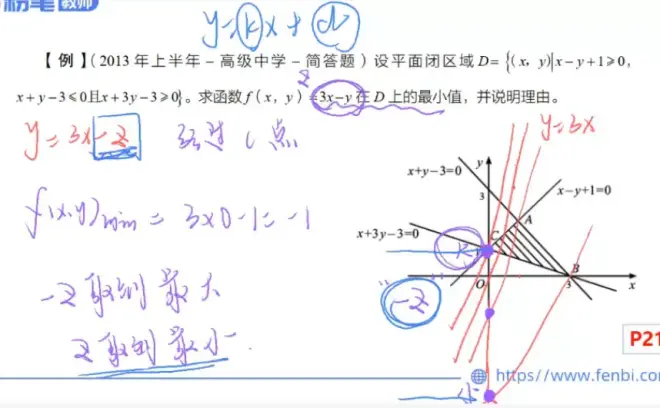 粉笔 教师
y=kx+d
【例】(2013年上半年-高级中学-简答题)设平面闭区域D={(x,y)|x-y+1≥0,
x+y-3≤0且x+3y-3≥0}。求函数f(x,y)=3x-y在D上的最小值,并说明理由。
z
y=3x-z 经过C点
y=3x
f(x,y)min = 3x0-1=-1
-z取到最大
z取到最小.
y
x+y-3=0
x-y+1=0
3
A
C
x+3y-3=0
B
O
3
x
-z
小
P21
https//www.fenbi.com